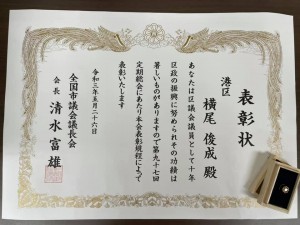 表彰状
港区
横尾俊成殿
あなたは区議会議員として十年
区政の振興に努められその功績は
著しいものがありますので第九十七回
定期総会にあたり本会表彰規程によって
表彰いたします
令和三年五月二十六日
全国市議会議長会
会長 清水富雄